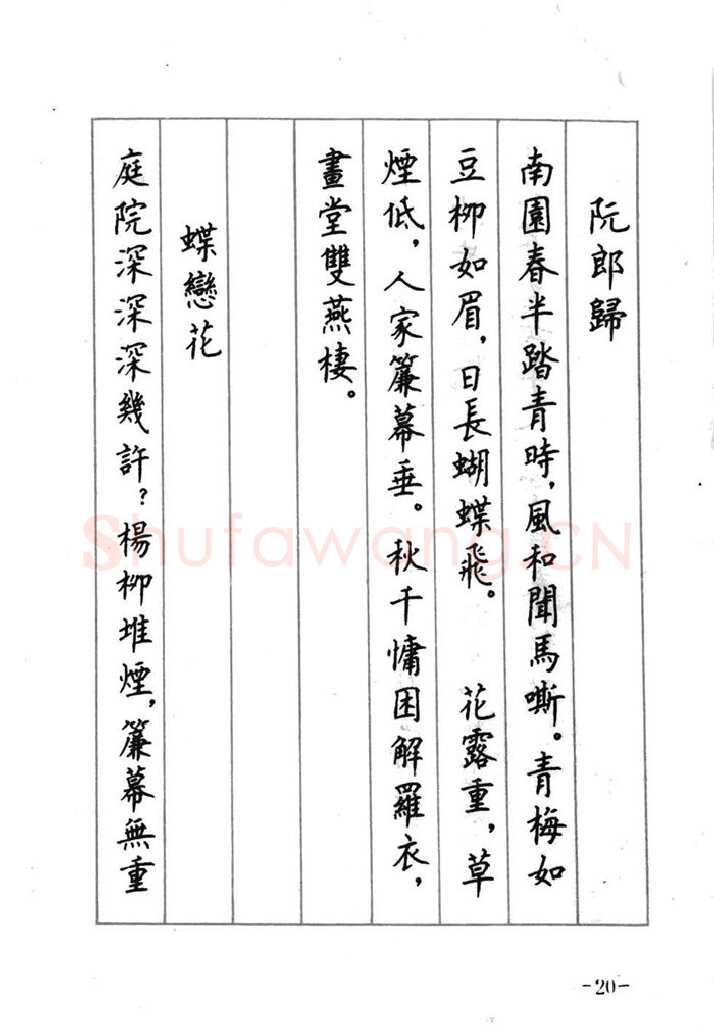 阮郎歸
南園春半踏青時，風和聞馬嘶。青梅如
豆柳如眉，日長蝴蝶飛。　花露重，草
煙低，人家簾幕垂。秋千慵困解羅衣，
畫堂雙燕棲。
蝶戀花
庭院深深深幾許？楊柳堆煙，簾幕無重
Shufawang.CN
-20-